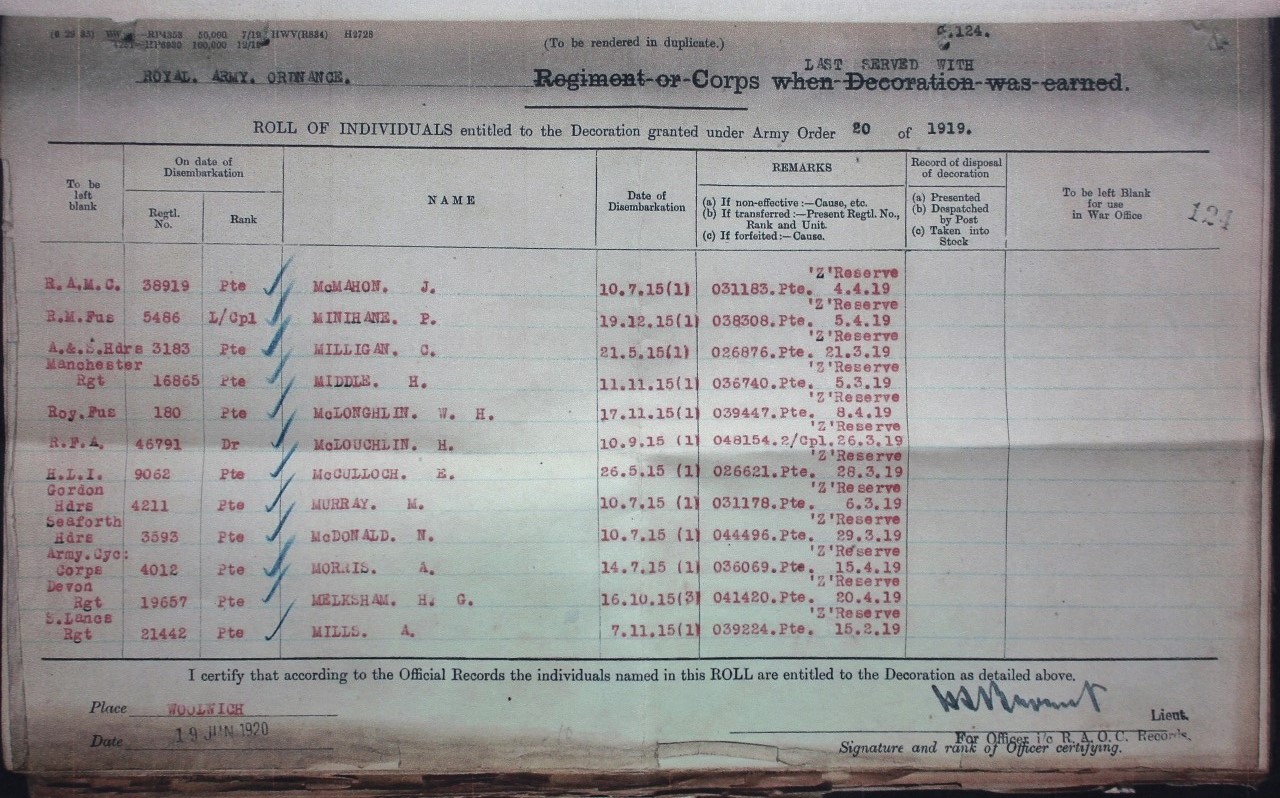 50,000 7/19 HWV(R834) H2728
100,000
(To be rendered in duplicate.)
124.
LAST SERVED WITH
ROYAL. ARMY. ORDNANCE. Regiment or Corps when Decoration was earned.
ROLL OF INDIVIDUALS entitled to the Decoration granted under Army Order 20 of 1919.
To be left blank
On date of Disembarkation
Regtl. No.
Rank
NAME
Date of Disembarkation
REMARKS
(a) If non-effective :—Cause, etc.
(b) If transferred :—Present Regtl. No., Rank and Unit.
(c) If forfeited :—Cause.
Record of disposal of decoration
(a) Presented
(b) Despatched by Post
(c) Taken into Stock
To be left Blank for use in War Office
124
'Z'Reserve
R.A.M.C. 38919 Pte McMAHON. J. 10.7.15(1) 031183.Pte. 4.4.19
'Z'Reserve
R.M.Fus 5486 L/Cpl MINIHANE. P. 19.12.15(1) 038308.Pte. 5.4.19
'Z'Reserve
A.&.S.Hdrs 3183 Pte MILLIGAN. C. 21.5.15(1) 026876.Pte. 21.3.19
Manchester 'Z'Reserve
Rgt 16865 Pte MIDDLE. H. 11.11.15(1) 036740.Pte. 5.3.19
'Z'Reserve
Roy.Fus 180 Pte McLONGHLIN. W. H. 17.11.15(1) 039447.Pte. 8.4.19
'Z'Reserve
R.F.A. 46791 Dr McLOUCHLIN. H. 10.9.15 (1) 048154.2/Cpl.26.3.19
'Z'Reserve
H.L.I. 9062 Pte McCULLOCH. E. 26.5.15 (1) 026621.Pte. 28.3.19
Gordon 'Z'Reserve
Hdrs 4211 Pte MURRAY. M. 10.7.15 (1) 031178.Pte. 6.3.19
Seaforth 'Z'Reserve
Hdrs 3593 Pte McDONALD. N. 10.7.15 (1) 044496.Pte. 29.3.19
Army.Cyc: 'Z'Reserve
Corps 4012 Pte MORRIS. A. 14.7.15 (1) 036069.Pte. 15.4.19
Devon 'Z'Reserve
Rgt 19657 Pte MELKSHAM. H. G. 16.10.15(3) 041420.Pte. 20.4.19
S.Lancs 'Z'Reserve
Rgt 21442 Pte MILLS. A. 7.11.15(1) 039224.Pte. 15.2.19
I certify that according to the Official Records the individuals named in this ROLL are entitled to the Decoration as detailed above.
Place WOOLWICH
Lieut.
Date 19 JUN 1920
For Officer i/c R.A.O.C. Records.
Signature and rank of Officer certifying.